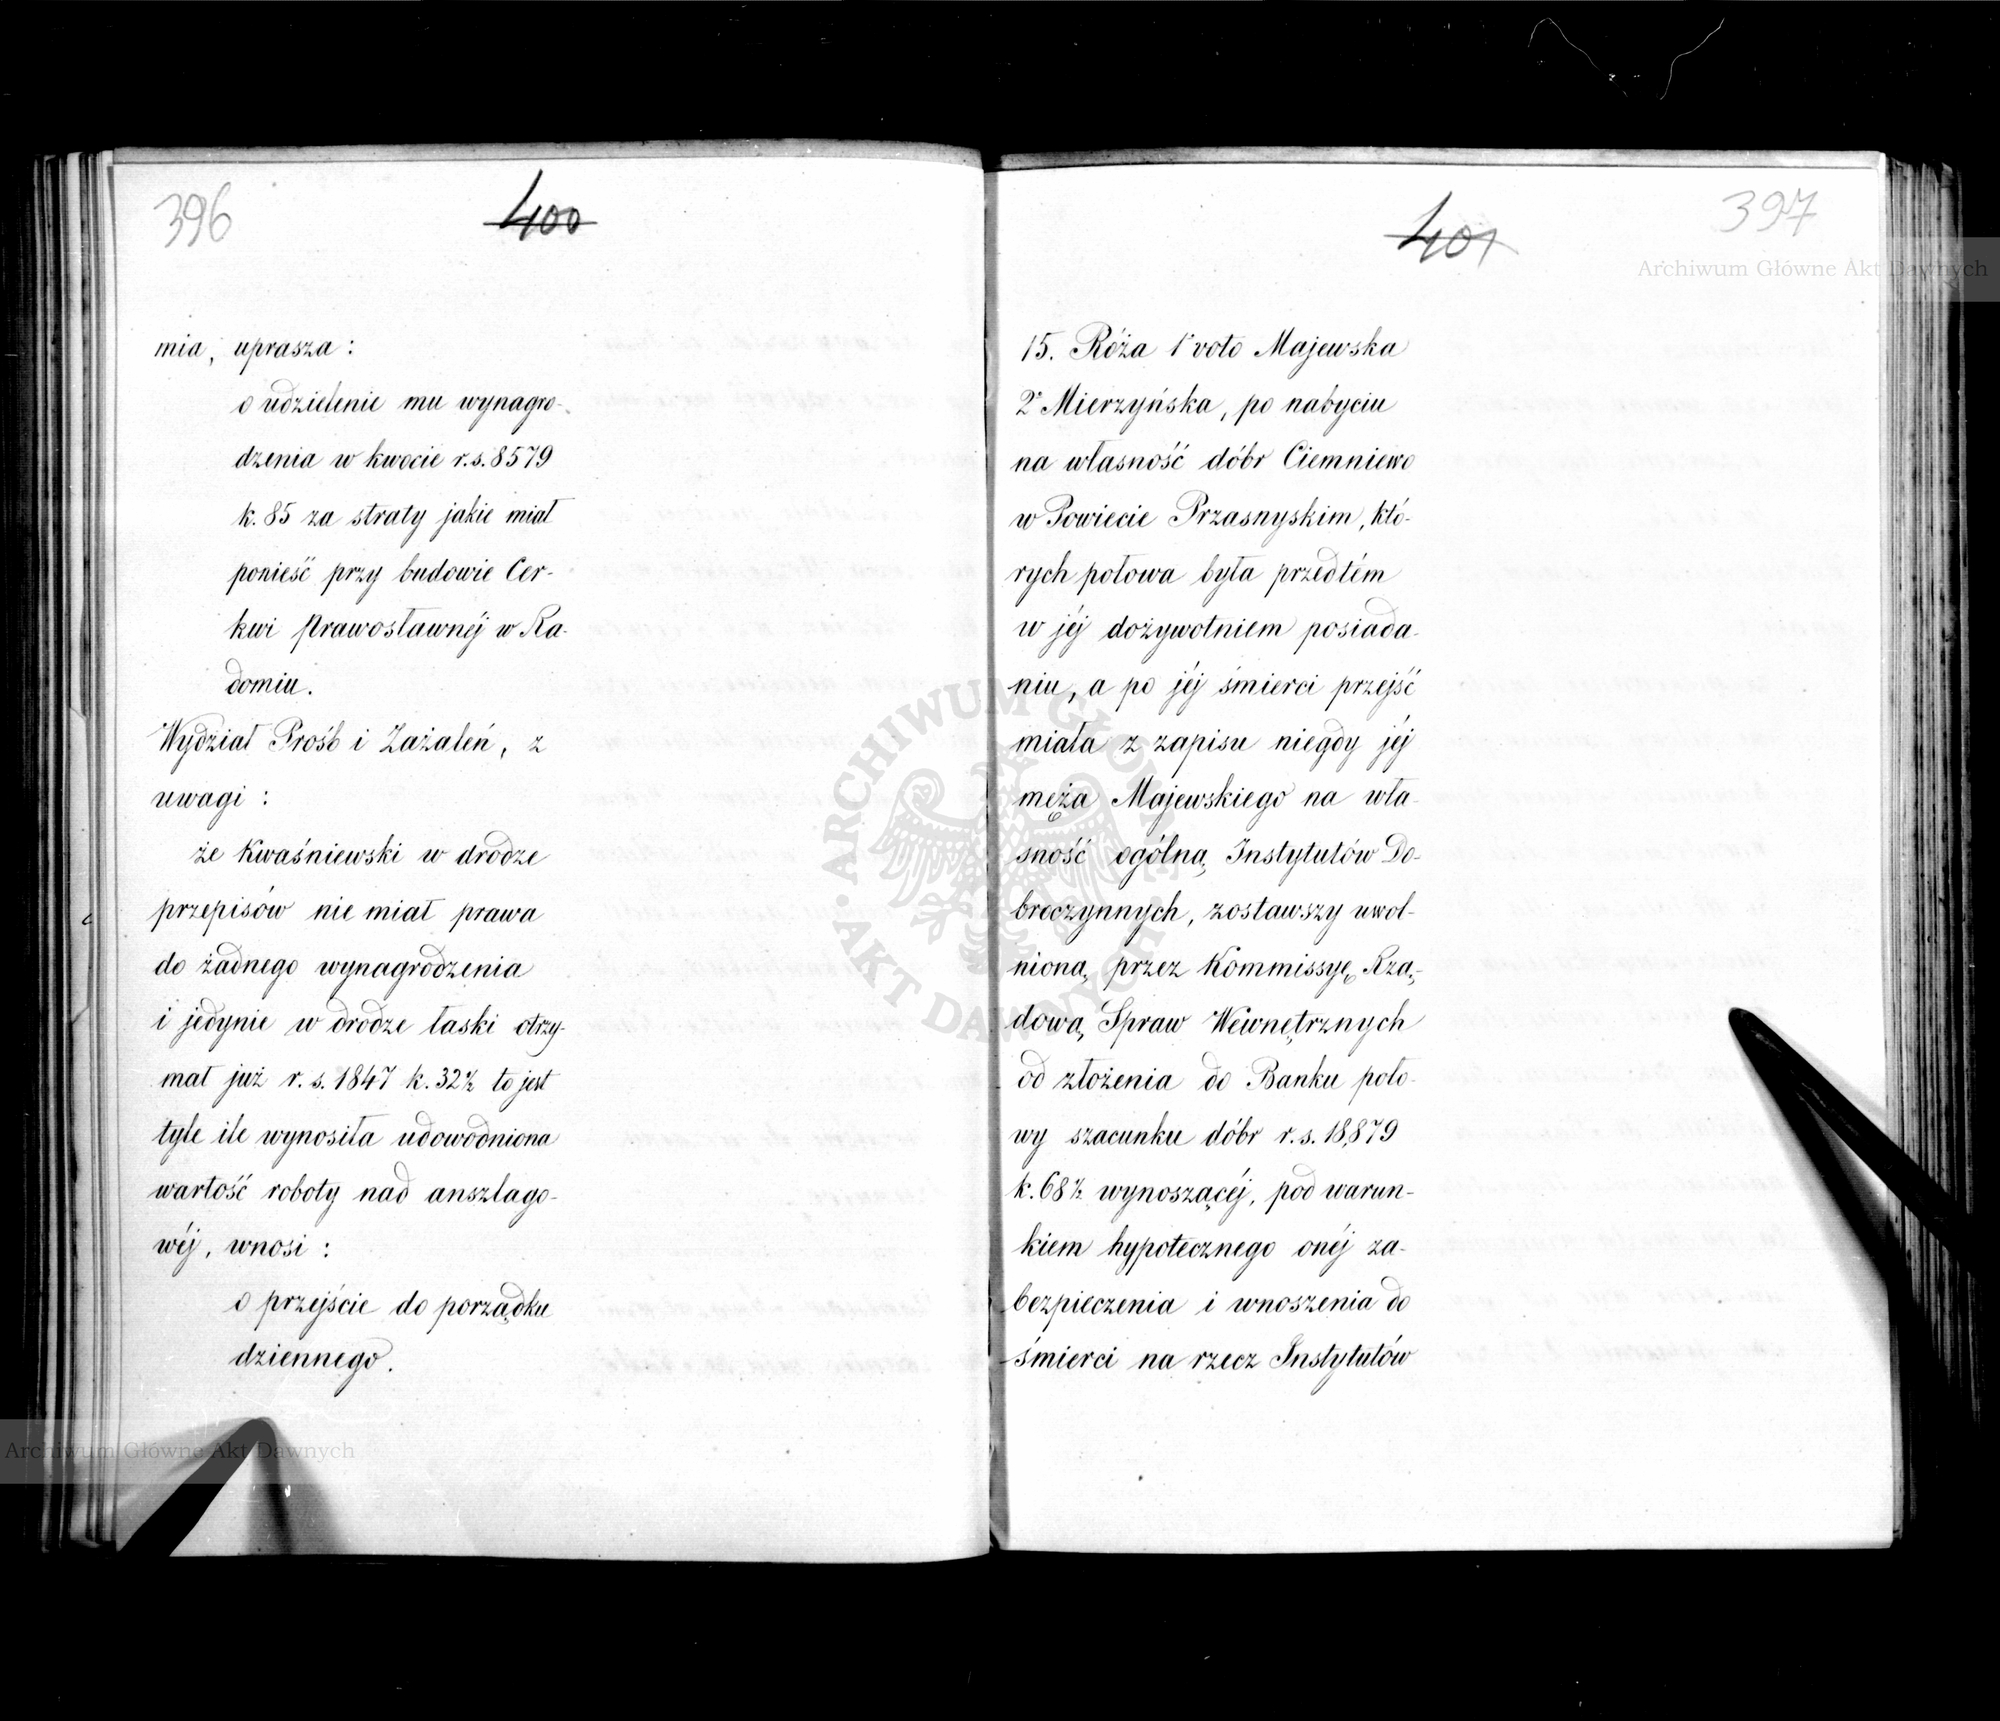 396
400
mia, uprasza:
o udzielenie mu wynagro-
dzenia w kwocie r.s. 8579
k. 85 za straty jakie miał
ponieść przy budowie Cer-
kwi Prawosławnéj w Ra-
domiu.
Wydział Prośb i Zażaleń, z
uwagi:
że Kwaśniewski w drodze
przepisów nie miał prawa
do żadnego wynagrodzenia
i jedynie w drodze łaski otrzy-
mał już r. s. 1847 k. 32½ to jest
tyle ile wynosiła udowodniona
wartość roboty nad anszlago-
wéj, wnosi:
o przejście do porządku
dziennego.
397
401
15. Róża 1º voto Majewska
2º Mierzyńska, po nabyciu
na własność dóbr Ciemniewo
w Powiecie Przasnyskim, któ-
rych połowa była przedtém
w jéj dożywotniem posiada-
niu, a po jéj śmierci przejść
miała z zapisu niegdy jéj
męża Majewskiego na wła-
sność ogólną Instytutów Do-
broczynnych, zostawszy uwol-
nioną przez Kommissyę Rzą-
dową Spraw Wewnętrznych
od złożenia do Banku poło-
wy szacunku dóbr r. s. 18,879
k. 68½ wynoszącéj, pod warun-
kiem hypotecznego onéj za-
bezpieczenia i wnoszenia do
śmierci na rzecz Instytutów
Archiwum Główne Akt Dawnych
ARCHIWUM GŁÓWNE AKT DAWNYCH
Archiwum Główne Akt Dawnych